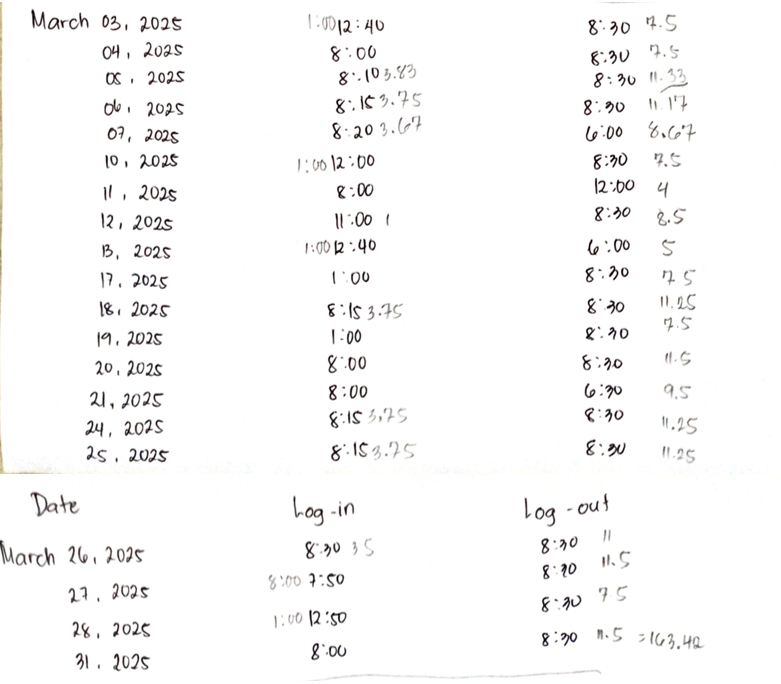 March 03, 2025 1:00 12:40 8:30 7.5
04, 2025 8:00 8:30 7.5
05, 2025 8:10 3.83 8:30 11.33
06, 2025 8:15 3.75 8:30 11.17
07, 2025 8:20 3.67 6:00 8.67
10, 2025 1:00 12:00 8:30 7.5
11, 2025 8:00 12:00 4
12, 2025 11:00 1 8:30 8.5
13, 2025 1:00 12:40 6:00 5
17, 2025 1:00 8:30 7.5
18, 2025 8:15 3.75 8:30 11.25
19, 2025 1:00 8:30 7.5
20, 2025 8:00 8:30 11.5
21, 2025 8:00 6:30 9.5
24, 2025 8:15 3.75 8:30 11.25
25, 2025 8:15 3.75 8:30 11.25
Date Log-in Log-out
March 26, 2025 8:30 3.5 8:30 11
27, 2025 8:00 7:50 8:30 11.5
28, 2025 1:00 12:50 8:30 7.5
31, 2025 8:00 8:30 11.5 =163.42